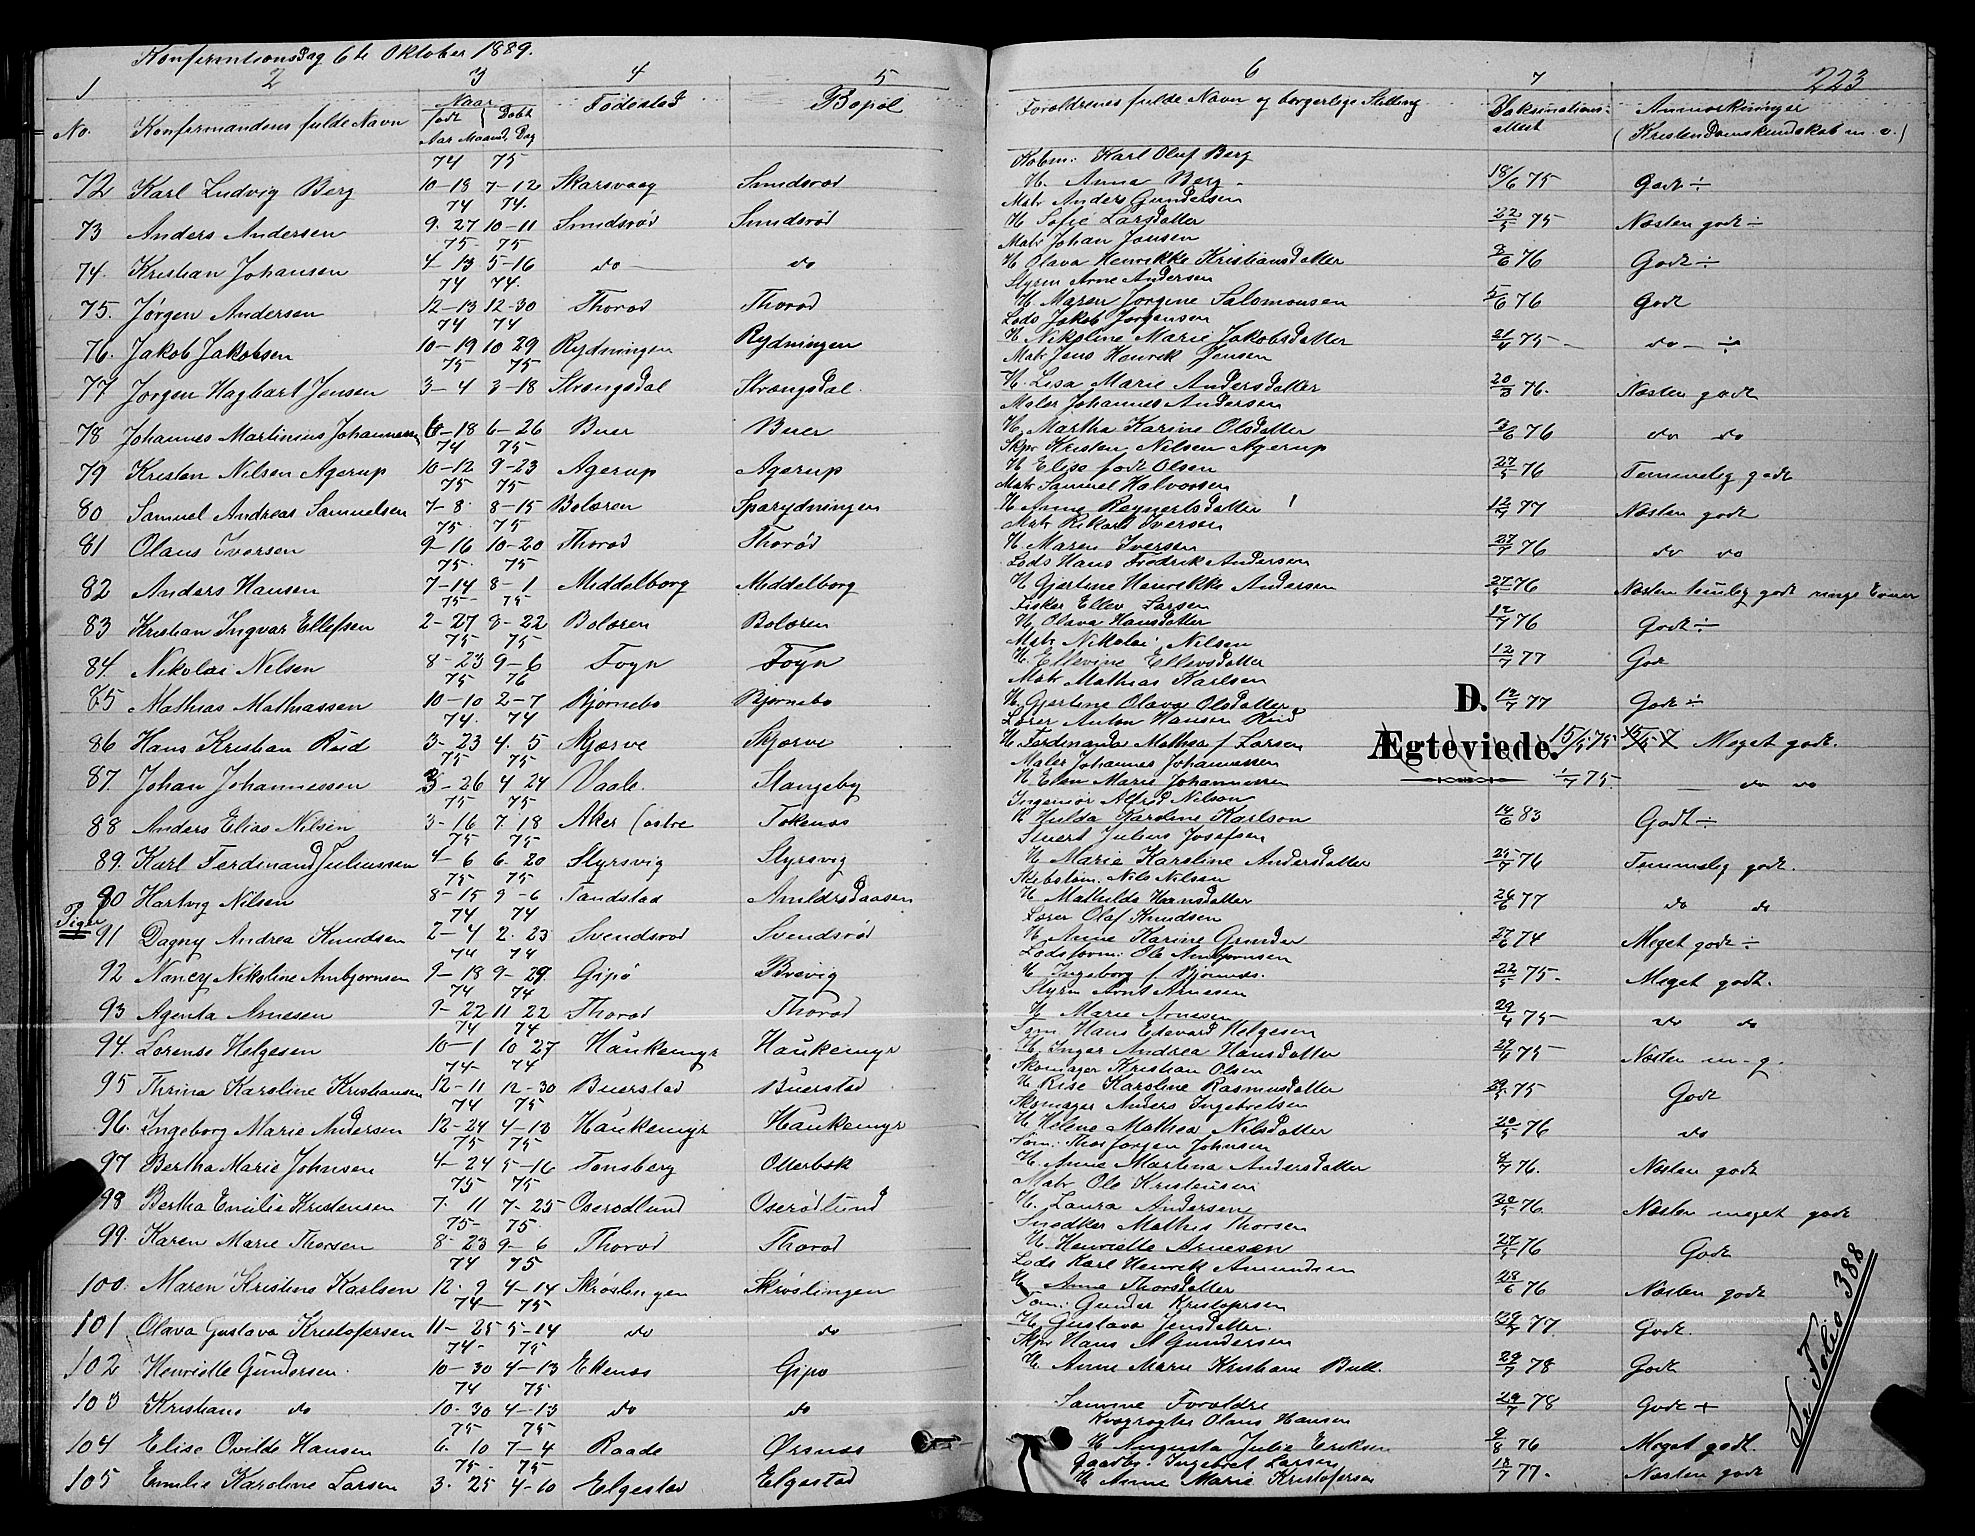 Konfirmtionsdag 6te Oktober 1889.
223
1 2 3 4 5 6 7
No. Konfirmandens fulde Navn Naar født Døbt Aar Maaned, Dag Fødested Bopæl Forældrenes fulde Navn og borgerlige Stilling Vaksinations-attest Anmærkninger (Kristendomskundskab m. v.)
74 75 Kobm: Karl Oluf Berg
72 Karl Ludvig Berg 10-18 7-12 Skarsvaag Smidsrød H. Anna Berg 18/6 75 Godt ÷
74 74. Matr Anders Gundersen
73 Anders Andersen 9. 27 10-11 Smidsrød Smidsrød H Sofie Larsdatter 22/5 75 Næsten godt ÷
75- 75 Matr Johan Jansen
74. Kristian Johansen 4-13 5-16 do do H Olava Henrikke Kristiansdatter 76 Godt ÷
74 74. Styrm Arne Andersen
75. Jørgen Andersen 12-13 12-30 Thorød Thorød H. Maren Jørgine Salomonsen 5/6 76 Godt
74 74 Lods Jakob Jørgensen
76. Jakob Jakobsen 10-19 10 29 Rydningen Rydningen H Nikoline Marie Jakobsdatter 21/4 75 do ÷
75 75 Matr Jens Henrik Jensen
77 Jørgen Hagbart Jensen 3-4 3-18 Strængsdal Strængsdal. H. Lisa Marie Andersdatter 20/3 76. Næsten godt
Maler Johannes Andersen
78 Johannes Martinius Johannessen 6-18 6-26 Buer Buer H Martha Karine Olsdatter 76 do do
74 75 Skpr Kristen Nilsen Agerup
79 Kristen Nilsen Agerup 10-12 9-23 Agerup Agerup H Elise født Olsen 27/5 76 Temmelig godt
75 75 Matr Samuel Halvorsen
80 Samuel Andreas Samuelsen 7-8 8-15 Bolæren Sparydningen H Anne Reynertsdatter 12/7 77 Næsten godt
75. 75 Matr Rikart Iversen
81 Olaus Iversen 9-16 10-20 Thorød Thorød H Maren Iversen 27/7 76 do do
75. 75 Lods Hans Fredrik Andersen
82 Anders Hansen 7-14 8-1 Middelborg Middelborg H Gjertine Henrikke Andersen 27/5 76 Næsten temlig godt ringe Evner
75- 75 Fisker Ellev Larsen
83 Kristian Ingvar Ellefsen 2-27 3-22 Bolæren Bolæren H Olava Hansdatter 12/7 76 Godt ÷
75 75 Matr Nikolai Nilsen
84 Nikolai Nilsen 8-23 9-6 Føyn Føyn H. Ellevine Ellevsdatter 12/7 77 God
75 76 Matr Mathias Karlsen
85 Mathias Mathiassen 10-10 2-7 Bjørnebo Bjørnebo H. Gjertine Olava Olsdatter 12/7 77 Godt ÷
74. 74 Lærer Anton Hansen Rud
D.
Ægteviede.
86 Hans Kristian Rud 3-23 4. 5 Skjærve Skjærve H Ferdinanda Mathea f Larsen 15/5 75 Meget godt.
75 75 Maler Johannes Johannessen
87. Johan Johannessen 3-26 4 24 Vaale. Stangeby H Elen Marie Johannessen 1/7 75. do do
75 75 Ingeniør Alfred Nilsen
88 Anders Elias Nilsen 3-16 7 18 Aker (østre Tokenes H Hulda Karoline Karlson 14/6 83 Godt ÷
75 75 Stuert Julius Josefsen
89. Karl Ferdinand Juliussen 4-6 6. 20 Styrsvig Styrsvig H Marie Karoline Andersdatter 25/7 76 Temmelig godt.
75 75 Skibstøm. Nils Nilsen
90 Hartvig Nilsen 8-15 9-6 Tandstad H Mathilde Hansdatter 26/6 77 do do
Piger
74 74 Lærer Olaf Knudsen
91 Dagny Andrea Knudsen 2-4 2. 23 Svendsrød Svendsrød H Anne Karine Grinder 27/6 74 Meget godt ÷
74 74 Lodsform: Ole Ambjørnsen
92 Nancy Nikoline Ambjørnsen 9-18 9-29 Gipø Brevig H Ingeborg f Bjønnes. 22/5 75- Meget godt.
74 74 Styrm Arnt Arnesen
93 Agenta Arnesen 9-22 11 22 Thorød Thorød H Marie Arnesen 29/4 75 do do
74 74 Tom: Hans Edevard Helgesen
94. Lorense Helgesen 10-1 10 27 Haukemyr Haukemyr H Inger Andrea Hansdatter 75 Næsten m-g.
74- 74 Skomager Kristian Olsen
95 Thrina Karoline Kristiansen 12-11 12-30 Buerstad Buerstad H Rise Karoline Rasmusdatter 75 Godt
74 75 Skomager Anders Ingebretsen
96. Ingeborg Marie Andersen 12-24 4-18 Haukemyr Haukemyr H Helene Mathea Nilsdatter 20/5 76 do
75 75 Tom: Thor Jørgen Johnsen
97 Bertha Marie Johnsen 4-24 5-16 Tønsberg Otterbæk H. Anne Martina Andersdatter 76. Næsten godt
75 75 Matr Ole Kristensen
98 Bertha Emilie Kristensen 7. 11 7-25 Oserødlund Oserødlund H. Laura Andersen 20/5 76. Næsten meget godt
75- 75 Snedker Mathis Thorsen
99. Karen Marie Thorsen 8-23 9-6 Thorød Thorød H. Henriette Arnesen 27/5 76 Godt
74 75 Lods Karl Henrik Amundsen
100. Maren Kristine Karlsen 12. 9 4-14 Skrøslingen Skrøslingen H Anne Thorsdatter 28/6 76 Næsten godt
74- 75 Tom: Gunder Kristofersen
101 Olava Gustava Kristofersen 11-25 5-14 do do H Gustava Jensdatter. 77. Godt.
74- 75 Skpr Hans A Gundersen
102 Henriette Gundersen 10-30 4-13 Ekenes Gipø H Anne Marie Kristiane Bull 29/7 78 Godt
74 75
103 Kristiane do 10. 30 4-13 do do Samme Forældre 29/7 78 Godt +
75 75 Kvægrøgter Olaus Hansen
104 Elise Ovilde Hansen 6. 10 7-4 Raade Ørsnes H Augusta Julie Eriksen 9/8 76 Meget godt.
75- 75 Gaardbr. Ingebret Larsen
105 Emilie Karoline Larsen 3. 25 4-10 Elgestad Elgestad H Anne Marie Kristofersen 18/7 77. Næsten godt
Til Folio 388